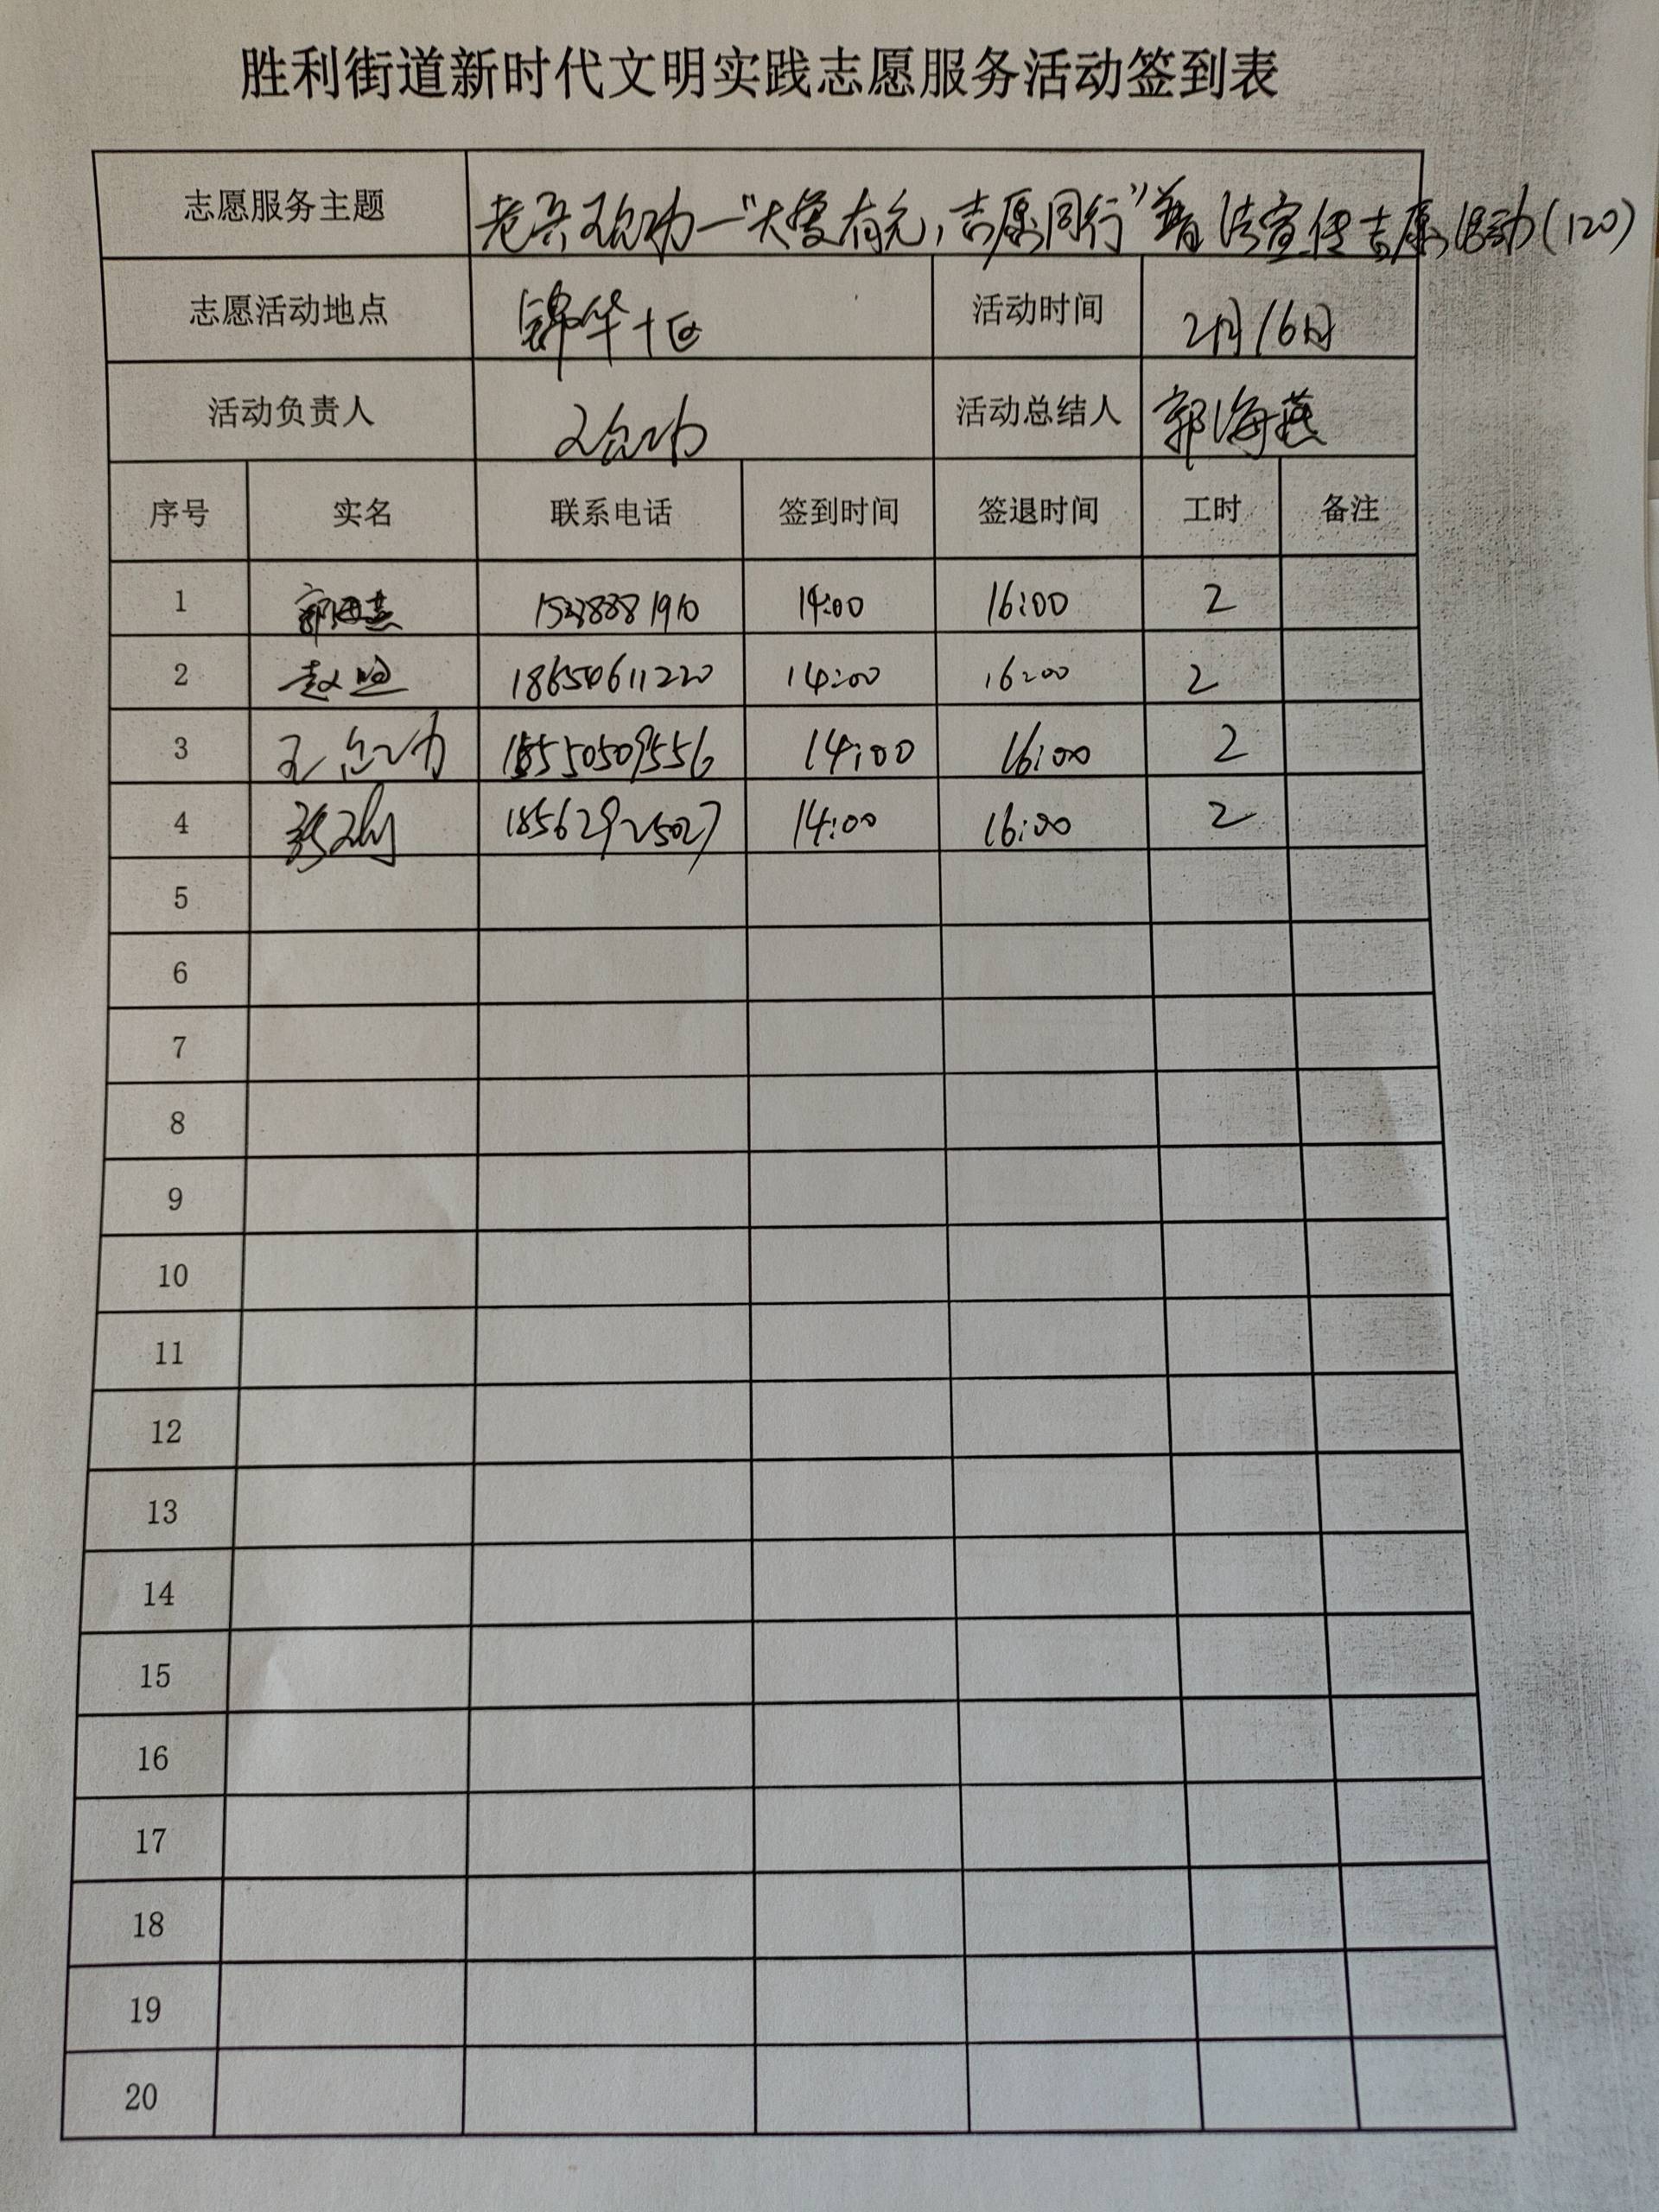 胜利街道新时代文明实践志愿服务活动签到表
志愿服务主题 老兵 一“大爱有光,志愿同行”普法宣传志愿活动(120)
志愿活动地点 锦华十区 活动时间 2月16日
活动负责人 活动总结人 郭海燕
序号 实名 联系电话 签到时间 签退时间 工时 备注
1 郭海燕 14:00 16:00 2
2 赵 18650611220 14:00 16:00 2
3 王 18550509556 14:00 16:00 2
4 张 18562925027 14:00 16:00 2
5
6
7
8
9
10
11
12
13
14
15
16
17
18
19
20